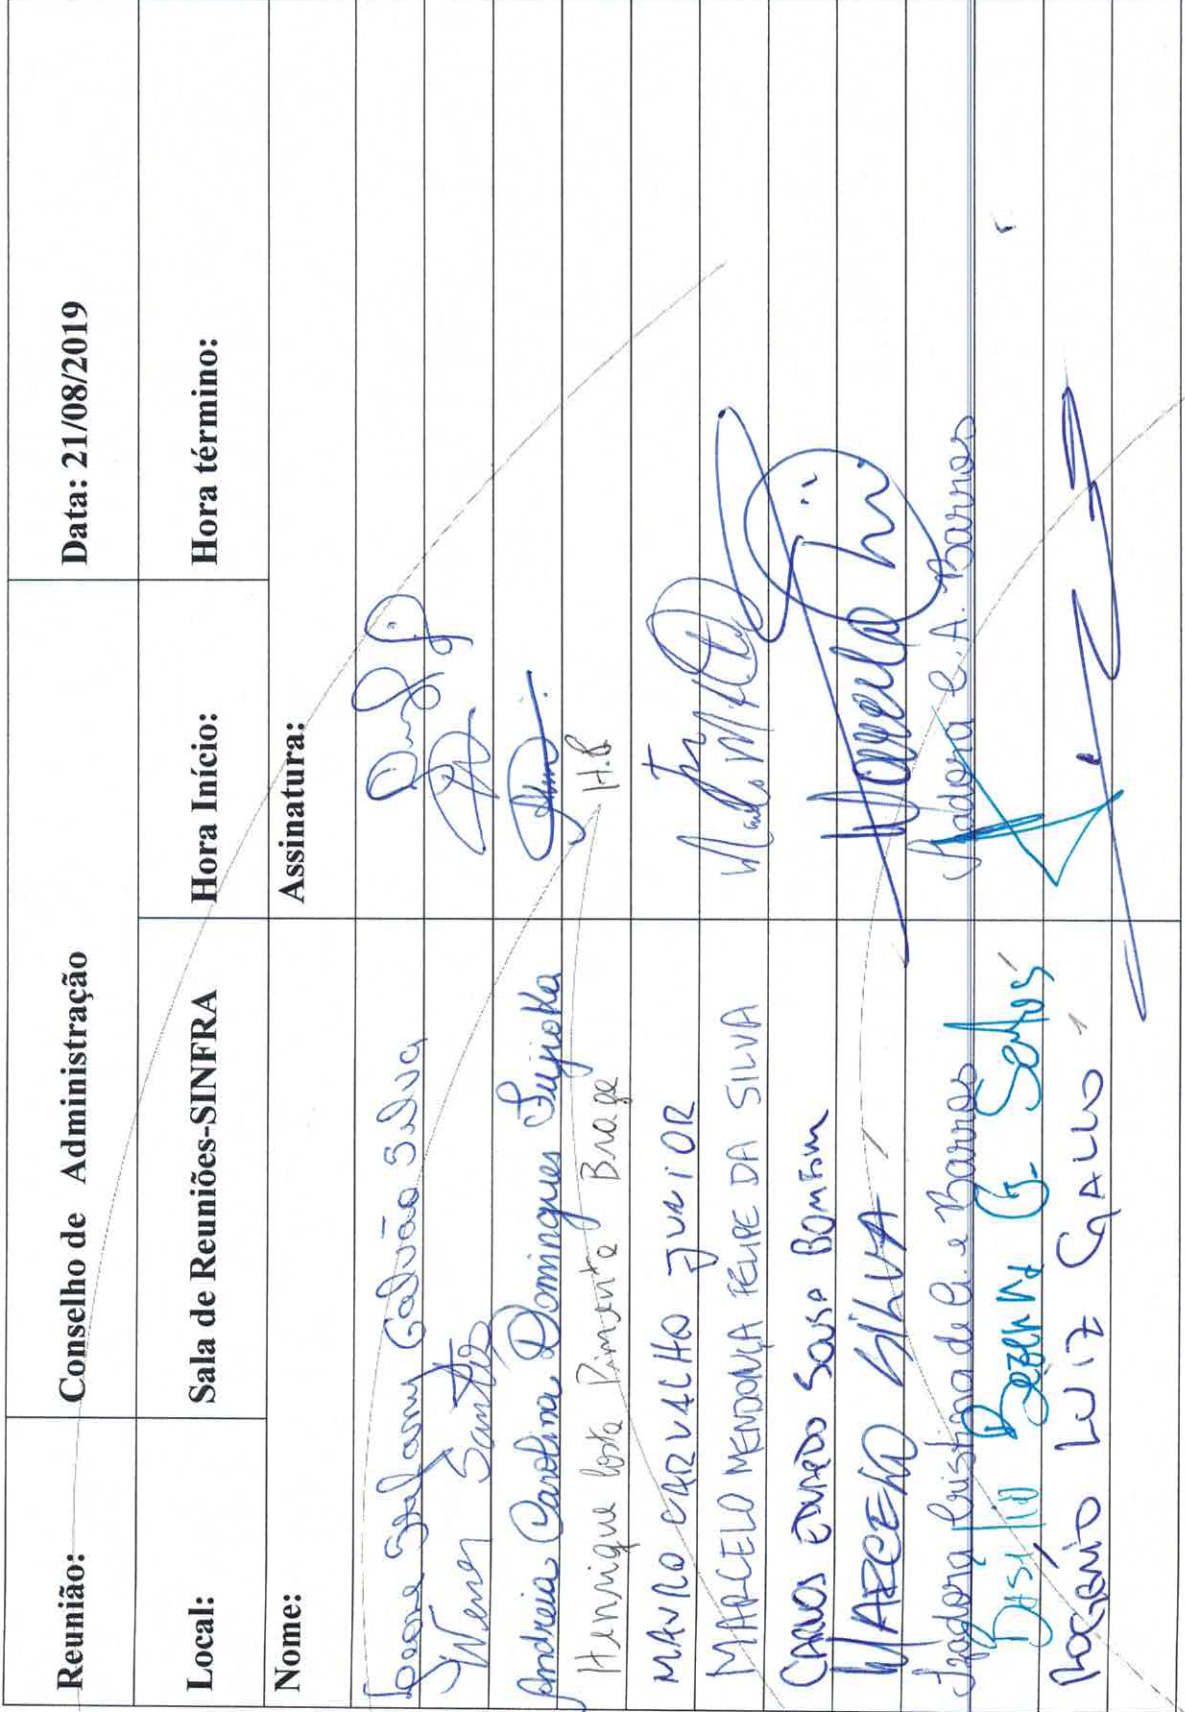 Reunião: Conselho de Administração Data: 21/08/2019
Local: Sala de Reuniões-SINFRA Hora Início: Hora término:
Nome: Assinatura:
Galvão Silva
Santos
Andreia Carolina Domingues Fujioka
Henrique Costa Pimenta Braga H.B
MAURO CARVALHO JUNIOR
MARCELO MENDONÇA FELIPE DA SILVA
CARLOS EDUARDO SOUSA BOMFIM
MARCELO SILVA
Izadora Cristina de A. e Barros Izadora C. A. Barros
BASILIO BEZERRA G. SANTOS
ROGÉRIO LUIZ GALLO